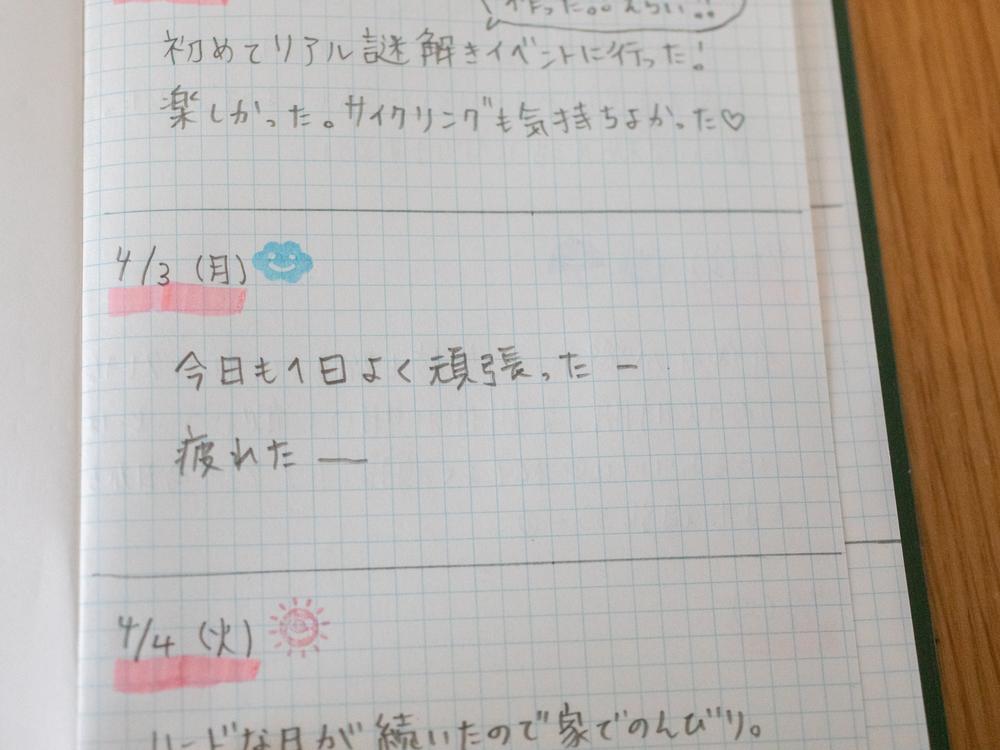 作った。。えらい!!
初めてリアル謎解きイベントに行った!
楽しかった。サイクリングも気持ちよかった♡
4/3 (月)
今日も1日よく頑張ったー
疲れたー
4/4 (火)
ハードな日が続いたので家でのんびり。